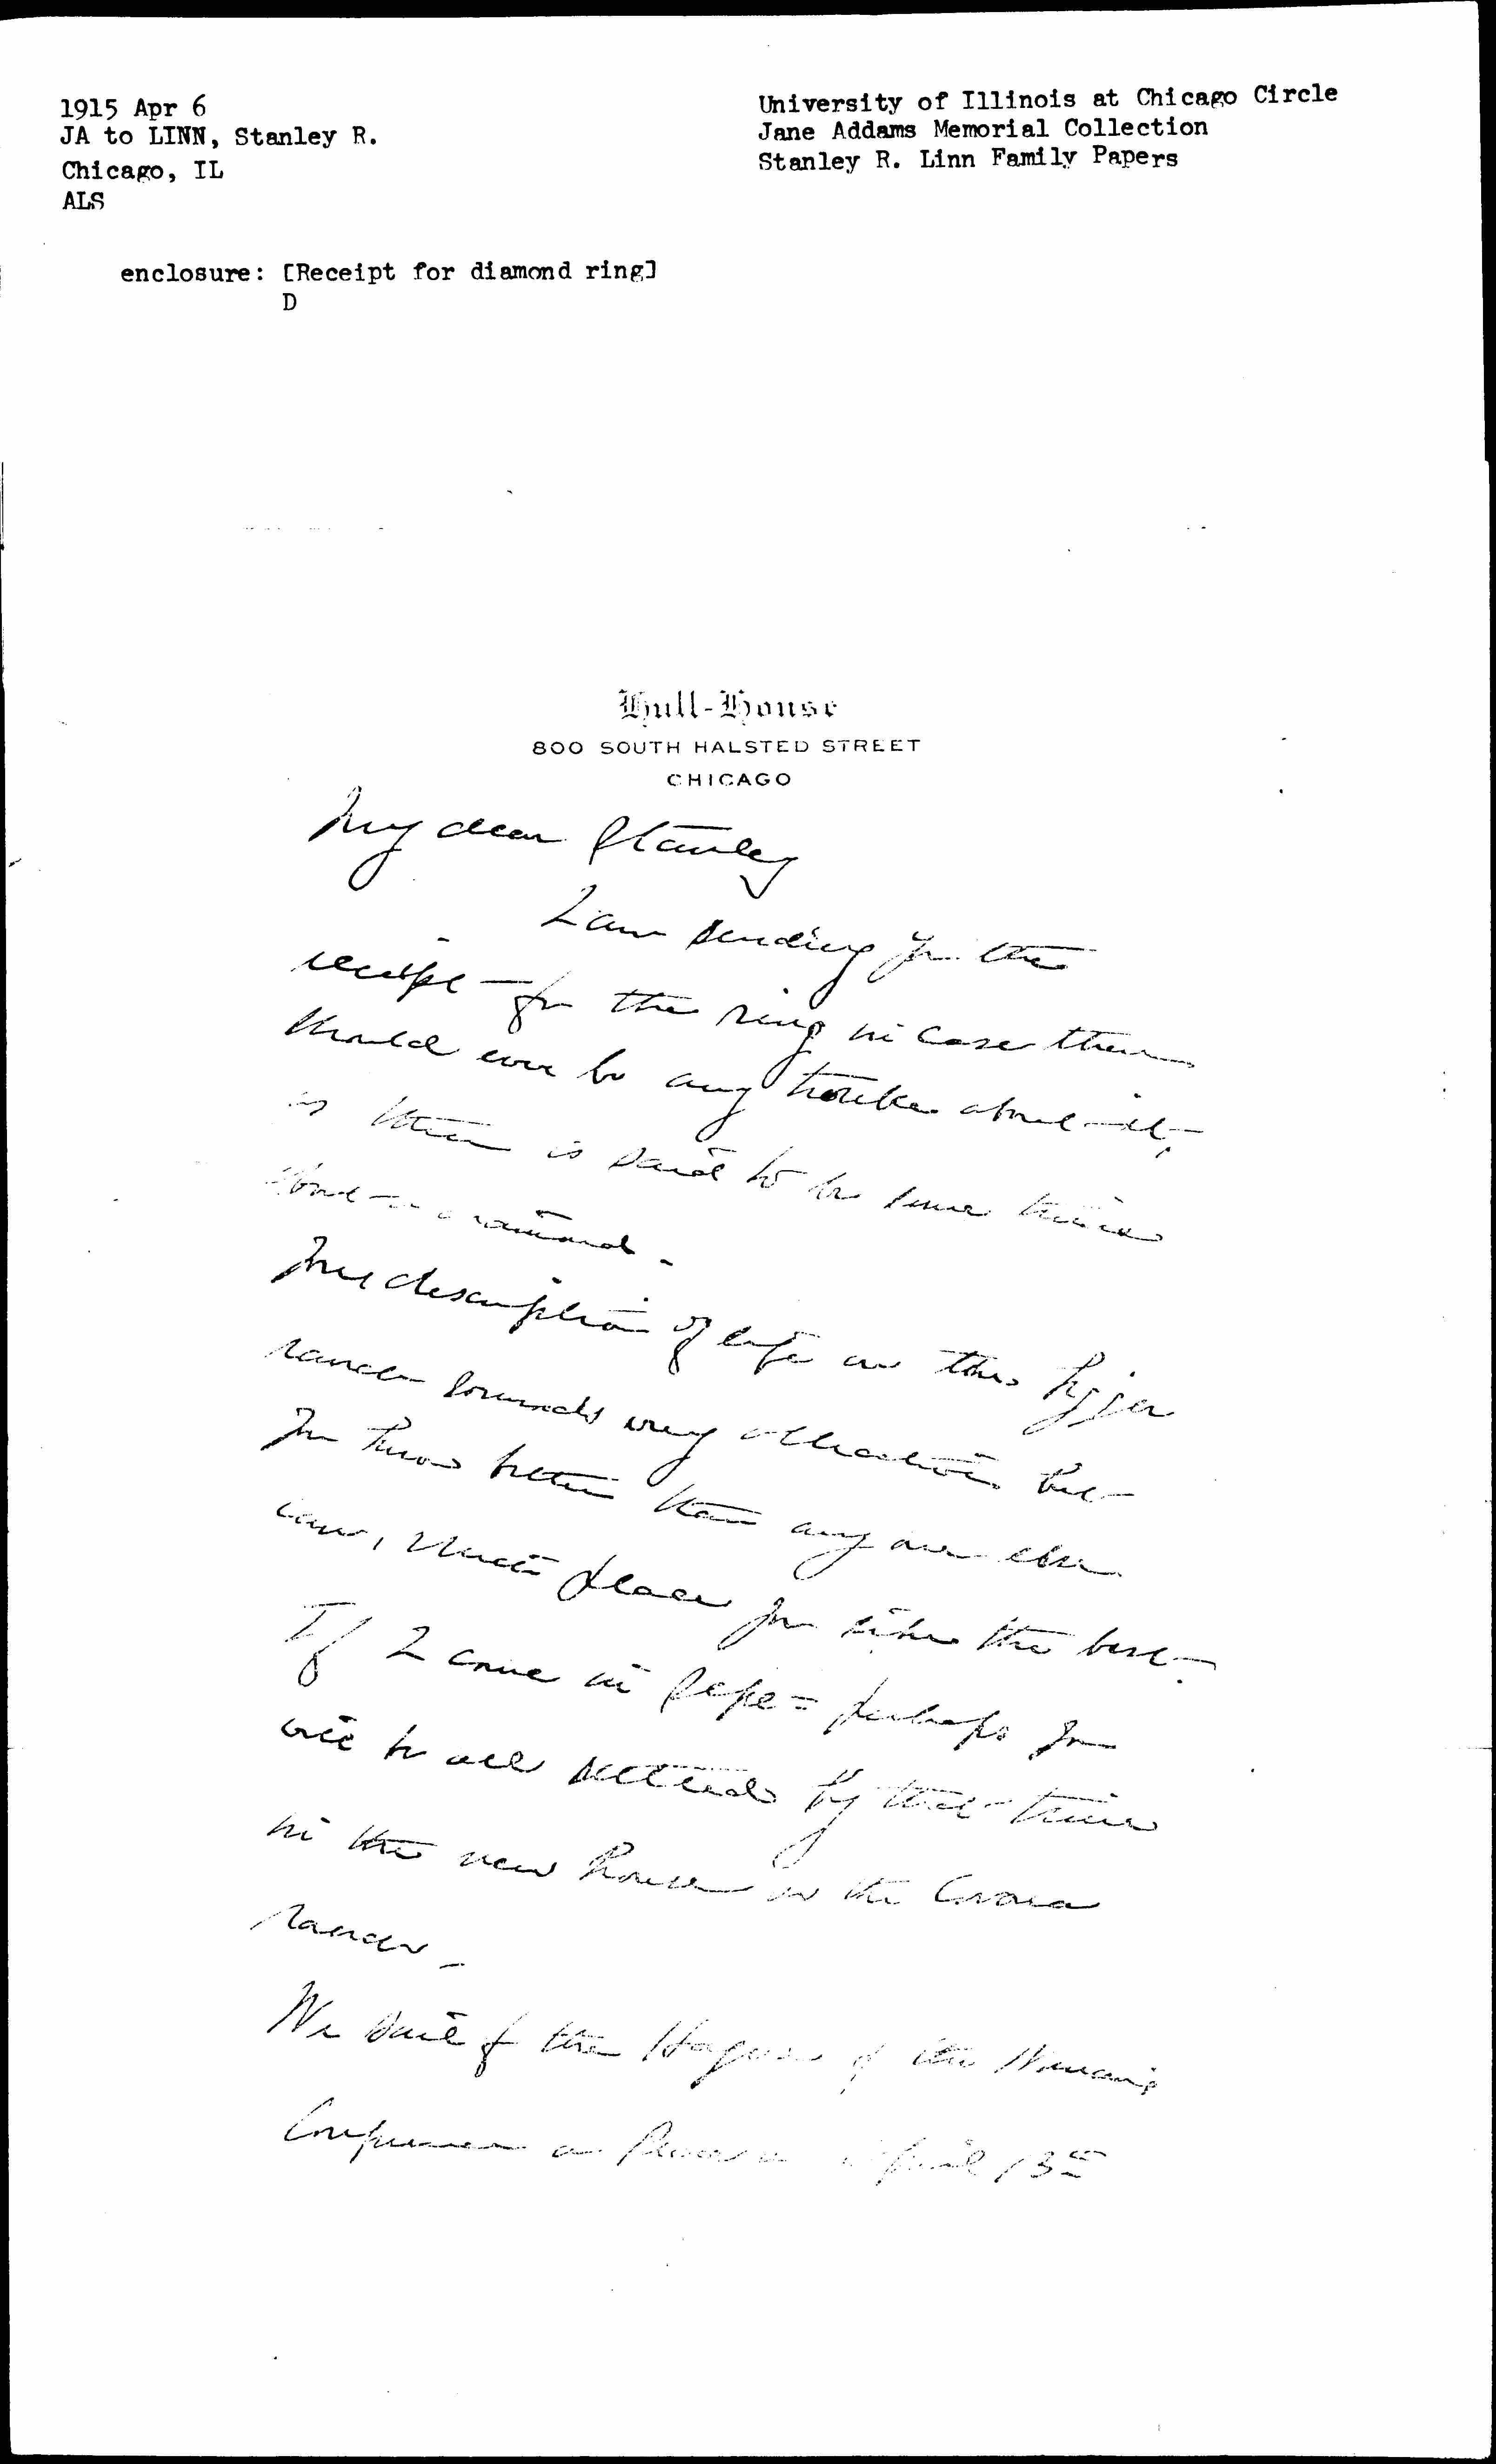 1915 Apr 6
JA to LINN, Stanley R.
Chicago, IL
ALS
University of Illinois at Chicago Circle
Jane Addams Memorial Collection
Stanley R. Linn Family Papers
enclosure: [Receipt for diamond ring]
D
Hull-House
800 SOUTH HALSTED STREET
CHICAGO
My dear Stanley
I am sending you the
receipt - for the ring in case there
should ever be any trouble about it,
as there is said to be some times
about a diamond -
The description of life on the
ranch sounds very attractive but
You know better than any one else
can, which place you like the best.
If I come in Sept = perhaps you
will be all settled by that time
in the new house on the Corona
ranch -
We sail for the Hague & the Woman's
Conference on Peace on April 13th